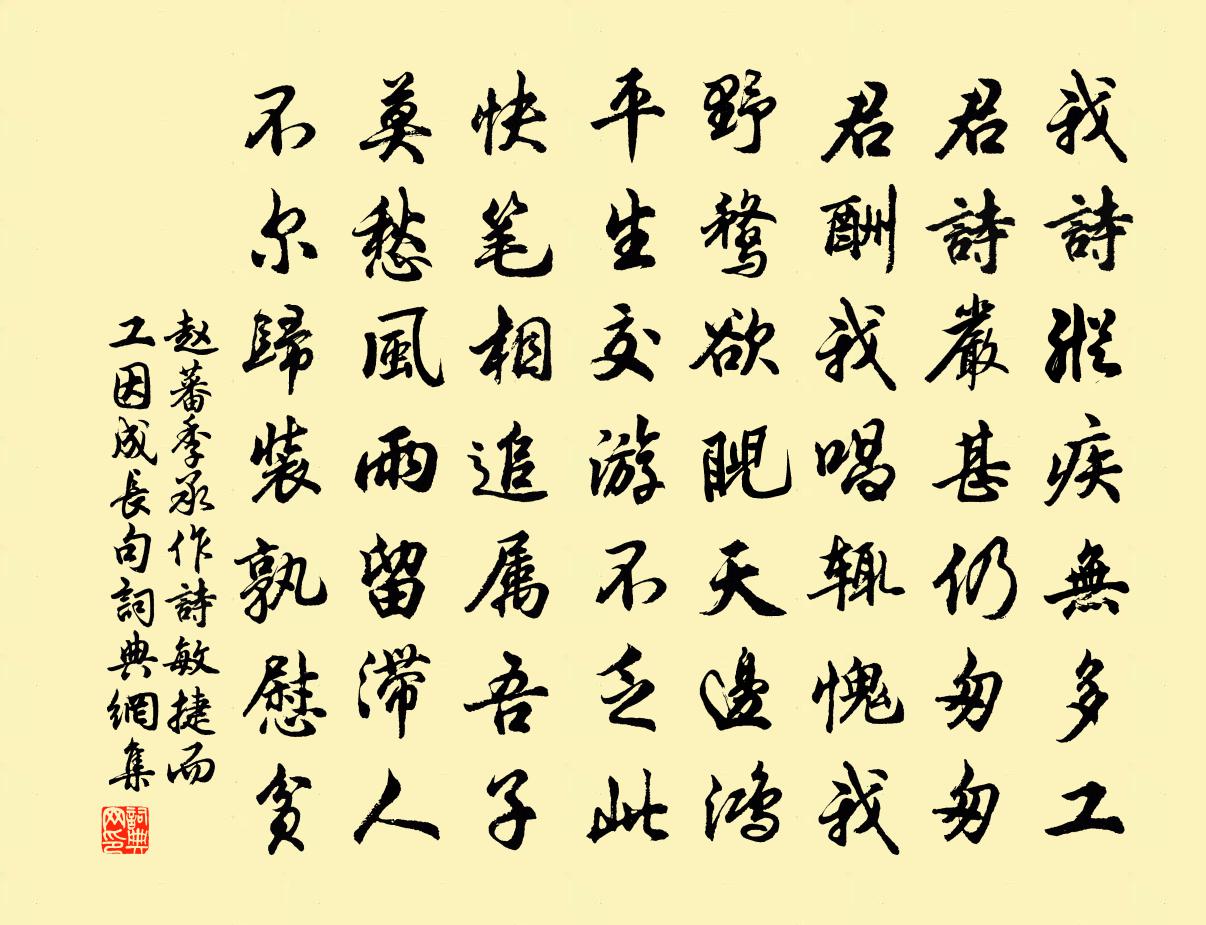 我詩縱疾無多工
君詩嚴甚仍匆匆
君酬我唱輒愧我
野鶩欲睨天邊鴻
平生交游不乏此
快笔相追属吾子
莫愁風雨留滞人
不尔歸裝孰慰貧
赵蕃季承作詩敏捷而
工因成長句詞典網集
詞典網印